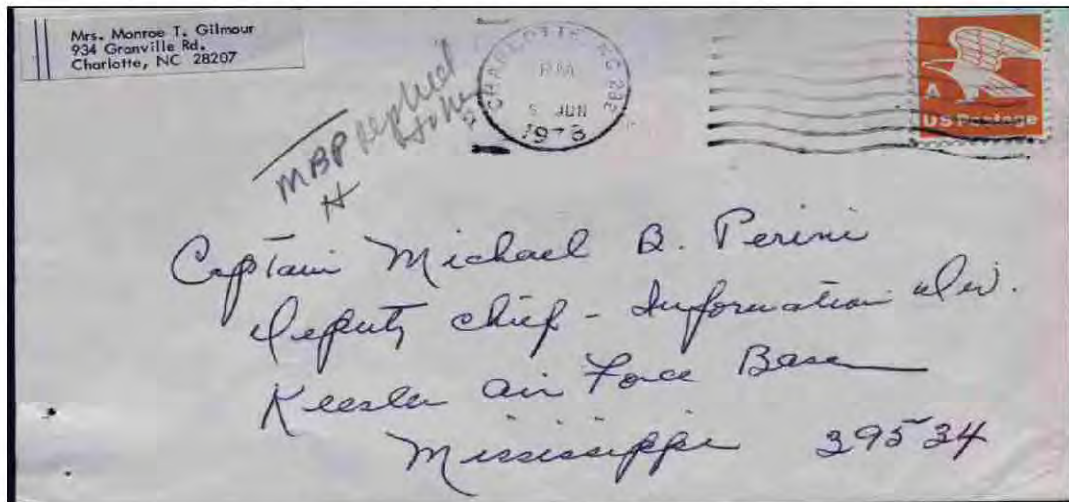 Mrs. Monroe T. Gilmour
934 Granville Rd.
Charlotte, NC 28207
CHARLOTTE NC 282
PM
5 JUN
1978
A
US Postage
MBP replied
H
Captain Michael B. Perini
Deputy Chief - Information Div.
Keesler Air Force Base
Mississippi 39534